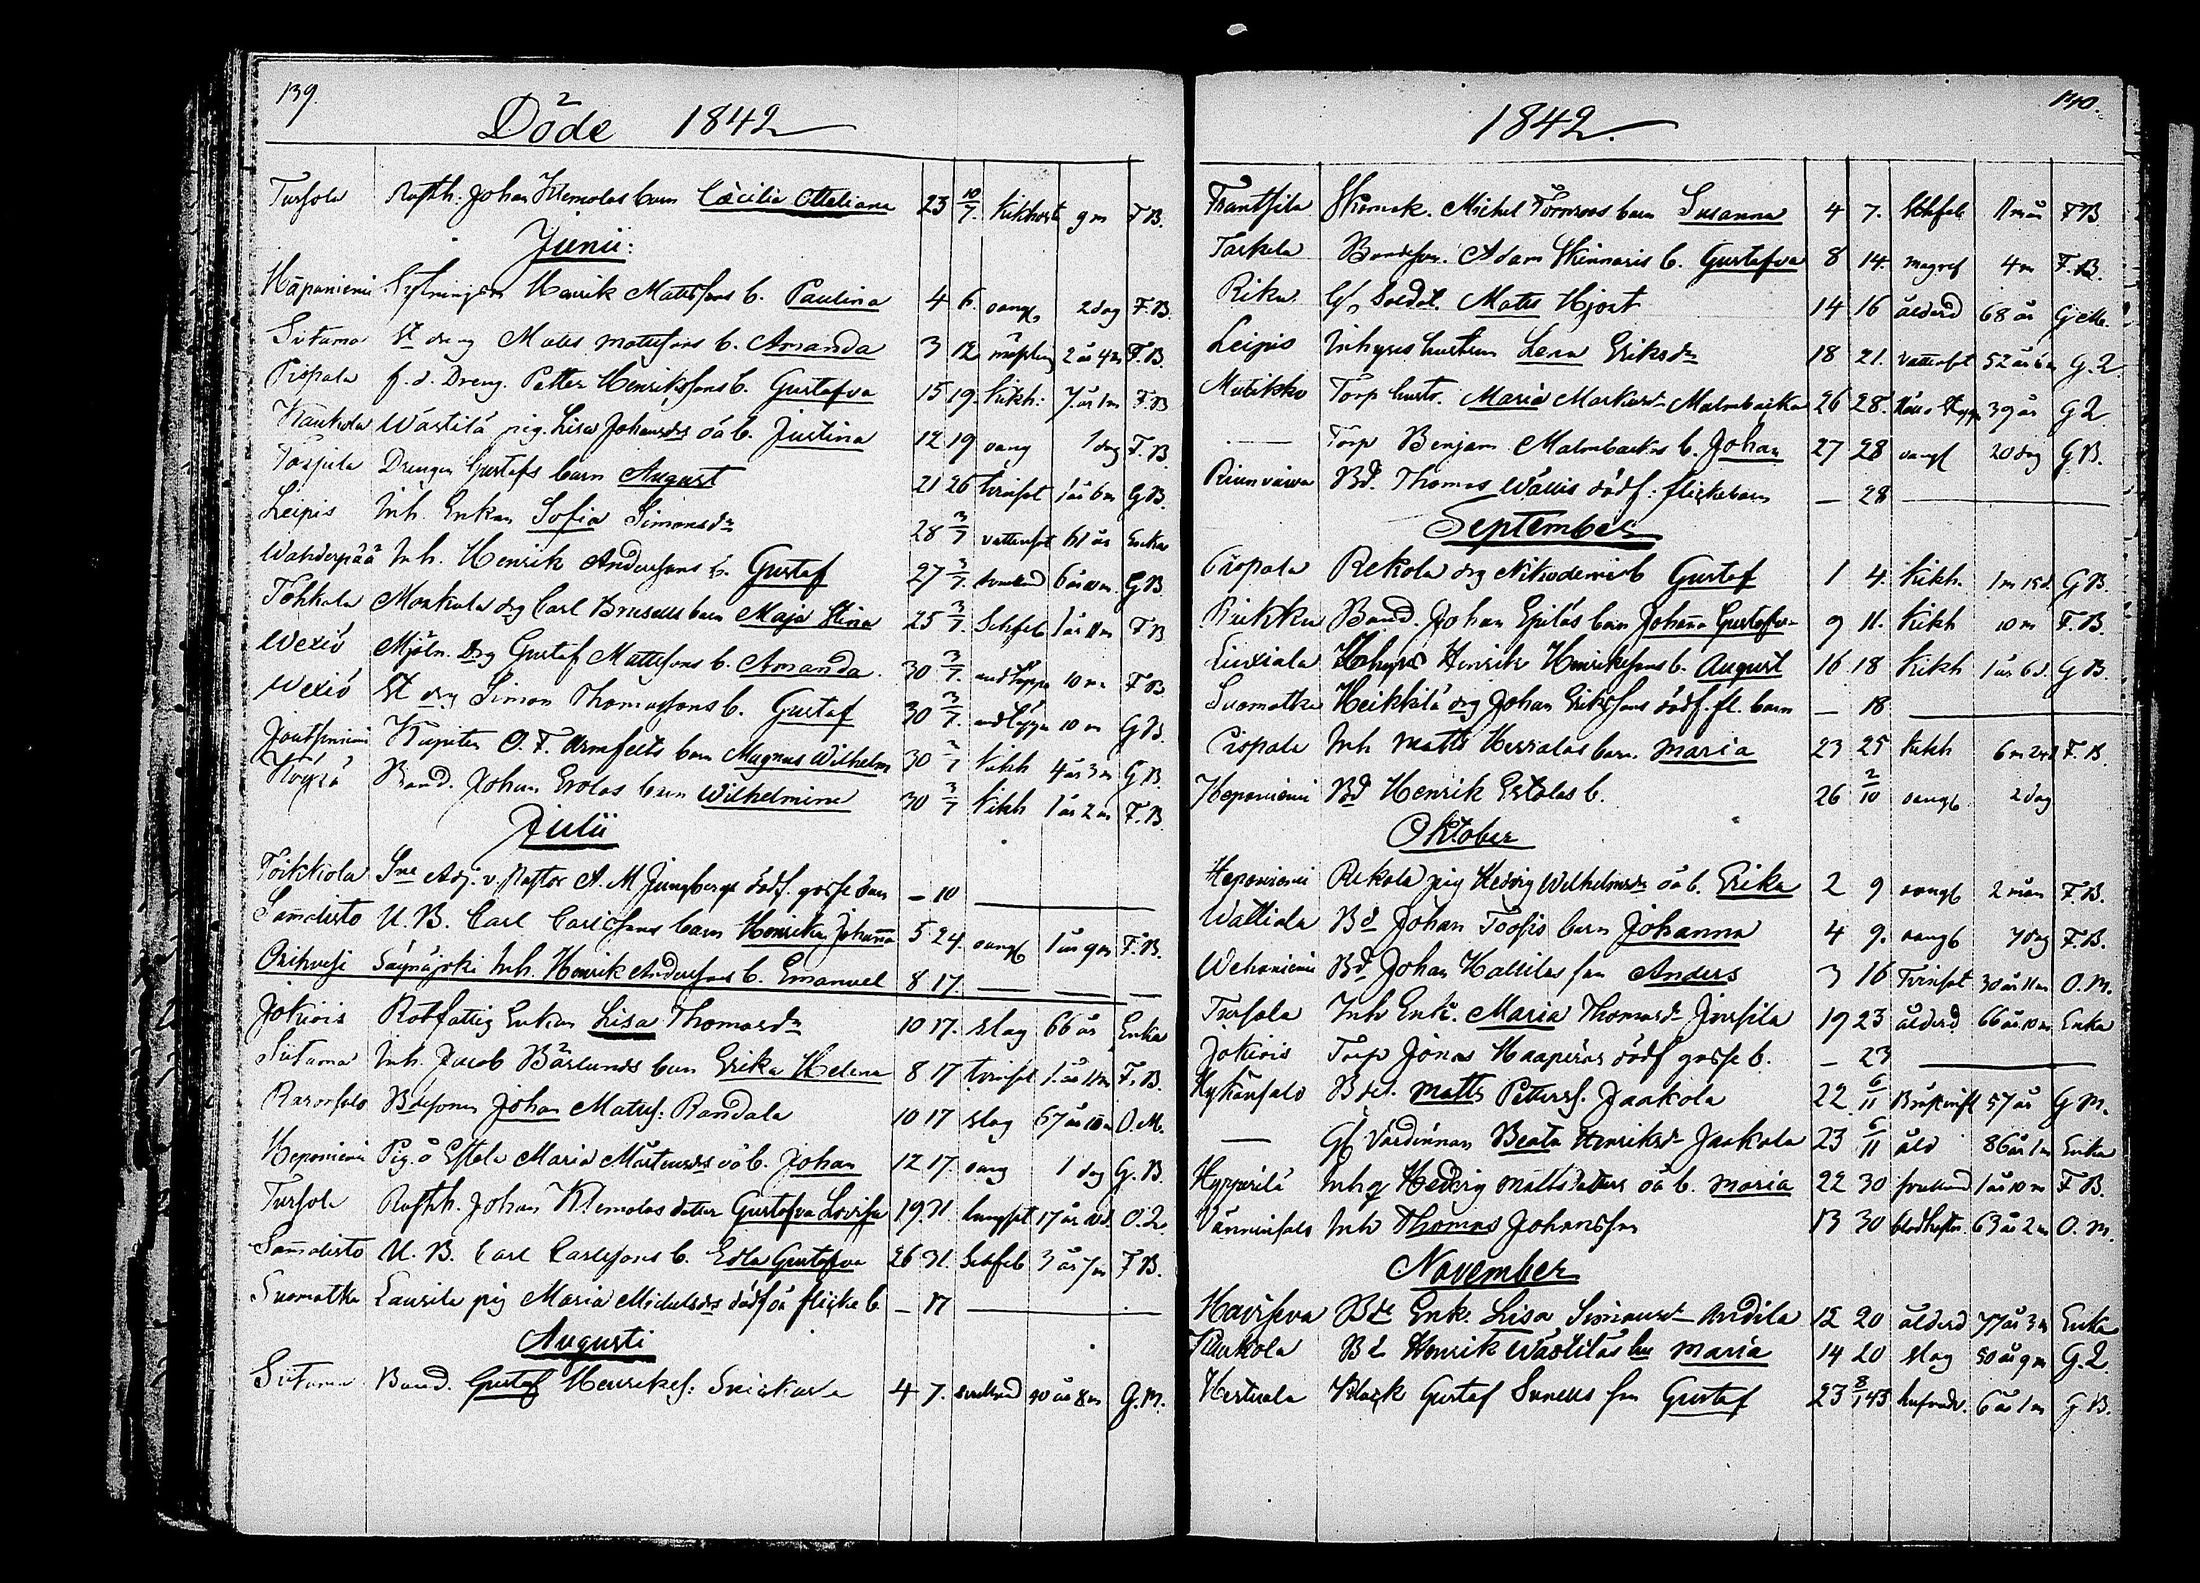 139.
Döde 1842
Tursola Rusth. Johan Klemolas barn Cæcilia Ottiliana 23 10/7. kikhosta 9 m F.B.
Junii:
Häpaniemi Sytningsm Henrik Mattssons b. Paulina 4 6. oangf 2 dag F.B.
Sutama St dräng Matts Mattssons b. Amanda 3 12 mäßling 2 år 4 m F.B.
Pispala f.d. Dreng. Petter Henrikssons b. Gustafva 15 19. kikh: 7 år 1 m F.B
Kaukola Wästilä pig. Lisa Johansdrs oä b. Justina 12 19 oang 1 dag F.B.
Torpula Drengen Gustafs barn August 21 26 tvinsot 1 år 6 m G.B.
Leipis Inh. Enkan Sofia Simonsdr 28 3/7 vattensot 61 år Enka
Wahderpää Inh. Henrik Anderssons b. Gustaf 27 3/7. 6 år 10 m. G.B.
Tokkola Monkola drg Carl Bruselis barn Maja Stina 25 3/7. Schfeb 1 år 11 m F.B
Wexiö Mjöln. Drg Gustaf Mattssons b. Amanda. 30 3/7. andtäppa 10 m F.B
Wexiö St drg Simon Thomassons b. Gustaf 30 3/7. andtäppa 10 m G.B.
Joutsiniemi Kapiten O. F. Armfelts barn Magnus Wilhelm 30 3/7 kikh 4 år 3 m G.B.
Höyzä Bond. Johan Erolas barn Wilhelmina 30 3/7 kikh 1 år 2 m F.B.
Julii
Toikkola Sne Adj. v. Pastor A. M. Jungbergs dödf. gosse barn – 10
Samalisto U. B. Carl Carlssons barn Henrika Johanna 5 24. oangf 1 år 9 m F.B.
Orihvesi Säynäjoki Inh. Henrik Anderssons b. Emanuel 8 17. — — —
Jokiois Rotfattig Enkan Lisa Thomasdr 10 17. slag 66 år Enka
Sutama Inh. Jacob Bärlunds barn Erika Helena 8 17 tvinsot 1 år 11 m F.B.
Raronsalo Bdesonen Johan Matss: Randala 10 17 slag 67 år 10 m O.M.
Heponiemi Pig. å Estola Maria Mårtensdrs oä b. Johan 12 17. oang 1 dag G.B.
Tursola Rusth. Johan Klemolas dotter Gustafva Lovisa 19. 31. lungsot 17 år O.Q.
Samalisto U. B. Carl Carlssons b. Edla Gustafva 26 31. Schfeb 3 år 7 m F.B.
Suomatka Laurila pig Maria Michelsdrs dödf oä flicke b – 17
Augusti
Sutama Bond. Gustaf Henrikss: Snickara 4 7. 90 år 8 m G.M.
140.
1842.
Frantsila Skomak. Michel Törnroos barn Susanna 4 7. Schfeb 11 mån F.B
Tackola Bondeson. Adam Skinnaris b. Gustafva 8 14. magref 4 m F.B.
Riku Gf. Soldat. Matts Hjort 14 16 ålderd 68 år G.M.
Leipis Inhyses hustrun Lena Eriksdr 18 21. vattensot 52 år 6 m G.Q
Mutikko Torp hustr. Maria Markusdr Malmbacka 26 28. 39 år G Q
— Torp Benjam Malmbackas b. Johan 27 28 oangf 20 dag G.B.
Bd. Thomas Wällis dödf: flickebarn – 28
September
Piopala Rekola drg Nikodemi b Gustaf 1 4. kikh. 1 m 15 d. G.B.
Rukku Bond. Johan Epiläs barn Johanna Gustafva 9 11. kikh 10 m F.B.
Liuxiala Inhyses Henrik Henrikssons b. August 16 18 kikh 1 år 6 d. G.B.
Suomatka Heikkilä drg Johan Erikssons dödf. fl. barn – 18
Piopala Inh Matts Herralas barn. Maria 23 25 kikh 6 m F.B.
Heponiemi Bd Henrik Estolas b. 26 2/10 oangf 2 dag
Oktober
Heponiemi Rekola pig Hedvig Wilhelmsdr oä b. Erika 2 9 oangf 2 mån F.B.
Wattiala Bd Johan Toopis barn Johanna 4 9. oangf 7 dag F.B.
Wehaniemi Bd Johan Hallilas son Anders 3 16 Tvinsot 30 år 11 m O.M.
Tursola Inh Enk. Maria Thomasdr Jussila 19 23 ålderd 66 år 10 m Enka
Jokiois Torp Jonas Haapasis dödf gosse b. – 23
Kykänsalo Bde. Matts Petterss. Jaakola 22 6/11 57 år G M.
— Gf Värdinnan Beata Henriksdr Jaakola 23 6/11 åld 86 år 1 m Enka
Kyppärilä Inhg Hedvig Mattsdotters oä b. Maria 22 30 1 år 10 m F.B.
Vänninsalo Inh Thomas Johansson 13 30 63 år 2 m O.M.
November
Havisova Bde Enk. Lisa Simonsdr Andila 12 20 ålderd 77 år 3 m Enka
Kaukola Bd Henrik Wästiläs hu Maria 14 20 slag 50 år 9 m G.Q
Hertuala Klock Gustaf Sunells son Gustaf 23 8/1 43 6 år 1 m G.B.